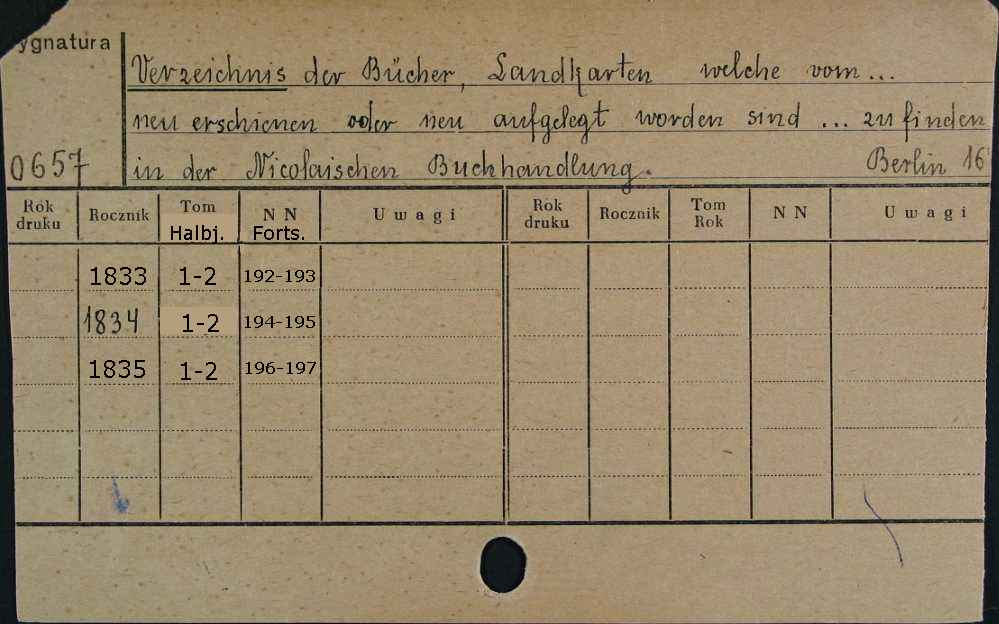 ygnatura
Verzeichnis der Bücher, Landkarten welche vom...
neu erschienen oder neu aufgelegt worden sind ... zu finden
0657 in der Nicolaischen Buchhandlung. Berlin 16°
Rok druku Rocznik Tom Halbj. N N Forts. Uwagi Rok druku Rocznik Tom Rok N N Uwagi
1833 1-2 192-193
1834 1-2 194-195
1835 1-2 196-197